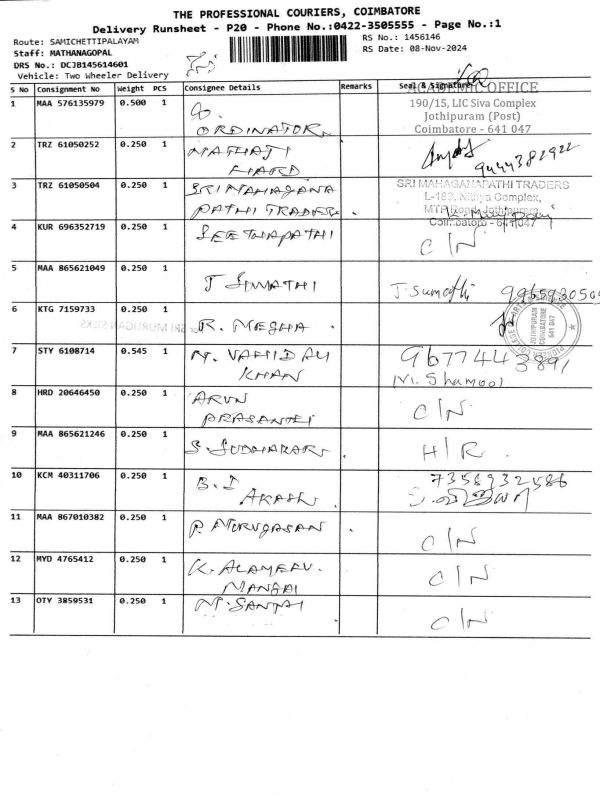 THE PROFESSIONAL COURIERS, COIMBATORE
Delivery Runsheet - P20 - Phone No.:0422-3505555 - Page No.:1
Route: SAMICHETTIPALAYAM
RS No.: 1456146
Staff: MATHANAGOPAL
RS Date: 08-Nov-2024
DRS No.: DCJB145614601
Vehicle: Two Wheeler Delivery
S No Consignment No Weight PCS Consignee Details Remarks Seal & Signature
ACADEMIC OFFICE
190/15, LIC Siva Complex
Jothipuram (Post)
Coimbatore - 641 047
1 MAA 576135979 0.500 1 CO.
ORDINATOR
2 TRZ 61050252 0.250 1
9444382922
3 TRZ 61050504 0.250 1 SRI MAHAGANA
PATHI TRADERS
SRI MAHAGANAPATHI TRADERS
L-183, Nithya Complex,
MTP Road, Jothipuram,
Coimbatore - 641047
4 KUR 696352719 0.250 1 SEETHAPATHI C/N
5 MAA 865621049 0.250 1 J SUMATHI J. Sumathi
6 KTG 7159733 0.250 1 R. MEGHA
SRI MURUGAN SILKS
JOTHIPURAM
COIMBATORE
641 047
7 STY 6108714 0.545 1 N. VAHID ALI
KHAN
9677443891
8 HRD 20646450 0.250 1 ARUN
PRASANTH C/N
9 MAA 865621246 0.250 1 S. SUDHAKAR H/R
10 KCM 40311706 0.250 1 B. J
AKASH
7358932586
11 MAA 867010382 0.250 1 P. MURUGASAN C/N
12 MYD 4765412 0.250 1 K. ALAMELU
MANGAI C/N
13 OTY 3859531 0.250 1 C/N